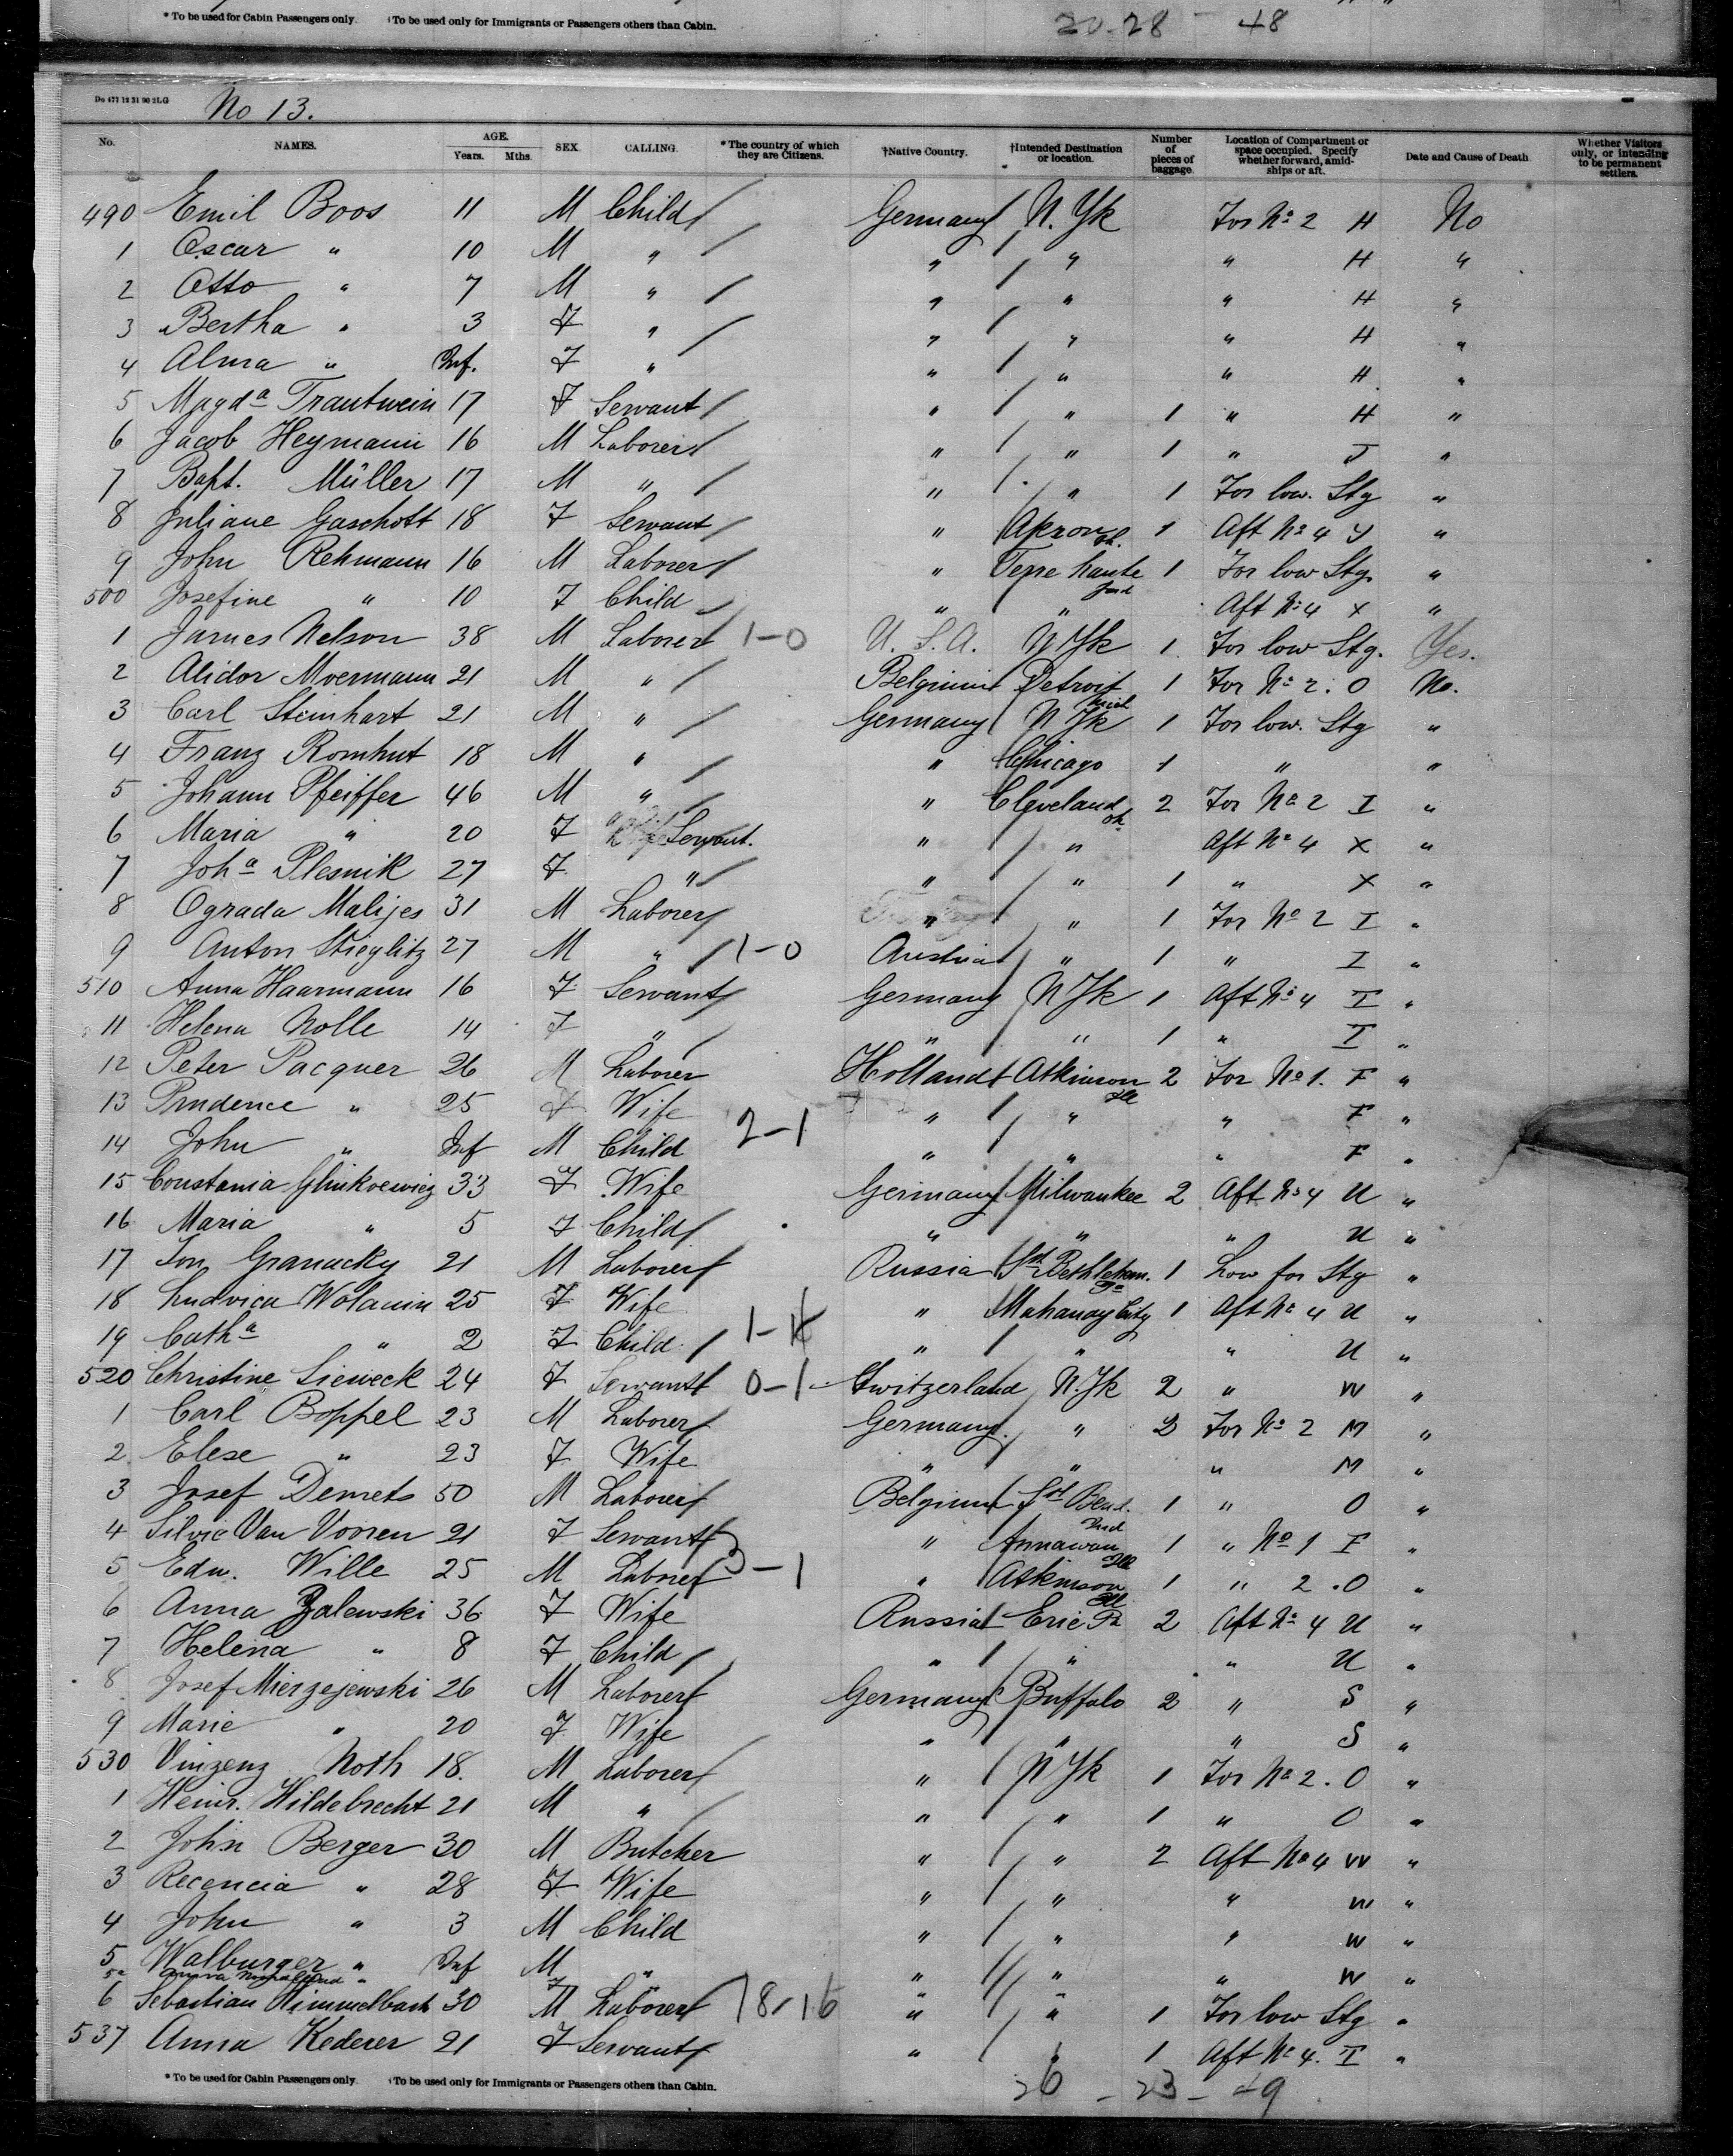 * To be used for Cabin Passengers only. † To be used only for Immigrants or Passengers others than Cabin. 20-28 - 48
Do 471 12 31 90 2LG No 13.
No. NAMES. AGE. Years. Mths. SEX. CALLING. * The country of which they are Citizens. †Native Country. †Intended Destination or location. Number of pieces of baggage Location of Compartment or space occupied. Specify whether forward, amidships or aft. Date and Cause of Death Whether Visitors only, or intending to be permanent settlers.
490 Emil Boos 11 M Child Germany N. Yk For No 2 H No
1 Oscar " 10 M " " " " H "
2 Otto " 7 M " " " " H "
3 Bertha " 3 F " " " " H "
4 Alma " Inf. F " " " " H "
5 Magda Trautwein 17 F Servant " " 1 " H "
6 Jacob Heymann 16 M Laborer " " 1 " J "
7 Bapt. Müller 17 M " " " 1 For low. Stg "
8 Juliane Gaschott 18 F Servant " Akron Oh. 1 Aft No 4 Y "
9 John Rehmann 16 M Laborer " Terre haute Ind 1 For low Stg. "
500 Josefine " 10 F Child " " Aft No 4 X "
1 James Nelson 38 M Laborer 1-0 U. S. A. N Yk 1 For low Stg. Yes.
2 Alidor Moermann 21 M " Belgium Detroit Mich 1 For No 2. O No.
3 Carl Steinhart 21 M " Germany N Yk 1 For low. Stg "
4 Franz Romhut 18 M " " Chicago 1 " "
5 Johann Pfeiffer 46 M " " Cleveland Oh 2 For No 2 I "
6 Maria " 20 F Servant. " " Aft No 4 X "
7 Joha Plesnik 27 F " " " 1 " X "
8 Ograda Malijes 31 M Laborer " " 1 For No 2 I "
9 Anton Stieglitz 27 M " 1-0 Austria " 1 " I "
510 Anna Haarmann 16 F Servant Germany N Yk 1 Aft No 4 T "
11 Helena Nolle 14 F " " " 1 " T "
12 Peter Pacquer 26 M Laborer Holland Atkinson Ill 2 For No 1. F "
13 Prudence " 25 F Wife " " " F "
14 John " Inf M Child 2-1 " " " F "
15 Constania Glinkoewicz 33 F Wife Germany Milwaukee 2 Aft No 4 U "
16 Maria " 5 F Child " " " U "
17 Jon Granacky 21 M Laborer Russia Sth Bethlehem. Pa 1 Low for Stg "
18 Ludvica Wolanin 25 F Wife " Mahanoy City 1 Aft No 4 U "
19 Catha " 2 F Child 1-1 " " " U "
520 Christine Sieweck 24 F Servant 0-1 Switzerland N. Yk 2 " W "
1 Carl Boppel 23 M Laborer Germany. " 2 For No 2 M "
2 Elese " 23 F Wife " " " M "
3 Josef Demets 50 M Laborer Belgium Sth Bend. Ind 1 " O "
4 Silvie Van Vooren 21 F Servant " Annawan Ill 1 " No 1 F "
5 Edw. Wille 25 M Laborer 3-1 " Atkinson Ill 1 " 2. O "
6 Anna Zalewski 36 F Wife Russia Erie Pa 2 Aft No 4 U "
7 Helena " 8 F Child " " " U "
8 Josef Mierzejewski 26 M Laborer Germany Buffalo 2 " S "
9 Marie " 20 F Wife " " " S "
530 Vinzenz Noth 18. M Laborer " N Yk 1 For No 2. O "
1 Heinr. Hildebrecht 21 M " " " 1 " O "
2 John Berger 30 M Butcher " " 2 Aft No 4 W "
3 Recencia " 28 F Wife " " " W "
4 John " 3 M Child " " " W "
5 Walburger " Inf M " " " " W "
5a " " F " "
6 Sebastian Himmelbach 30 M Laborer 18-16 " " 1 For low Stg "
537 Anna Kederer 21 F Servant " " 1 Aft No 4. T "
* To be used for Cabin Passengers only. † To be used only for Immigrants or Passengers others than Cabin. 26 - 23 - 49